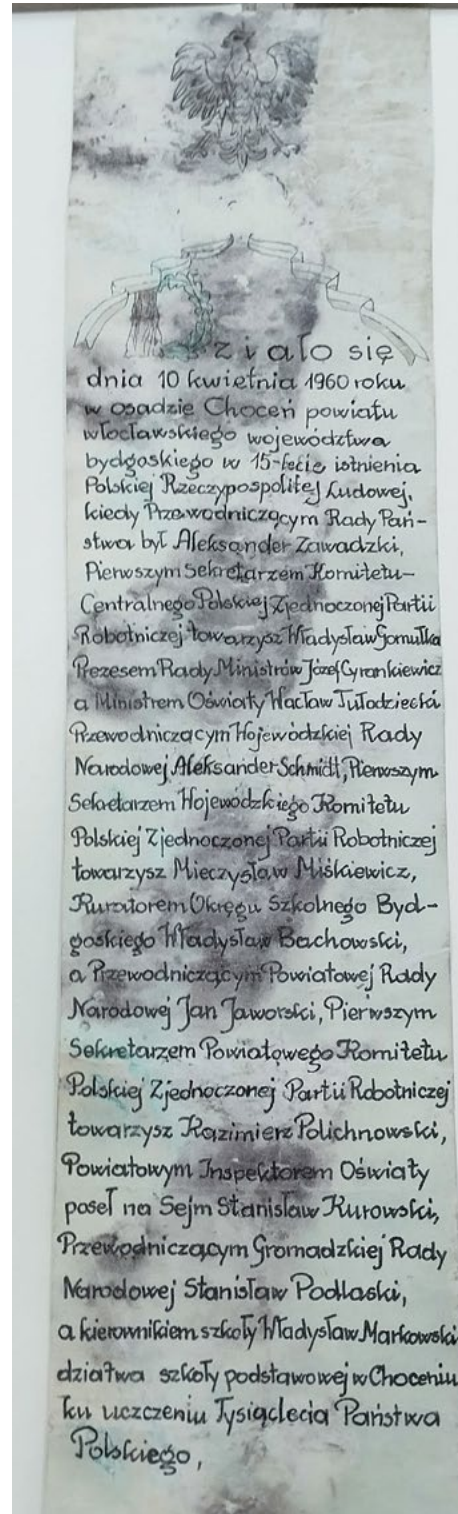 Działo się
dnia 10 kwietnia 1960 roku
w osadzie Choceń powiatu
włocławskiego województwa
bydgoskiego w 15-lecie istnienia
Polskiej Rzeczypospolitej Ludowej,
kiedy Przewodniczącym Rady Pań-
stwa był Aleksander Zawadzki,
Pierwszym Sekretarzem Komitetu-
Centralnego Polskiej Zjednoczonej Partii
Robotniczej towarzysz Władysław Gomułka
Prezesem Rady Ministrów Józef Cyrankiewicz
a Ministrem Oświaty Wacław Tułodziecki
Przewodniczącym Wojewódzkiej Rady
Narodowej Aleksander Schmidt, Pierwszym
Sekretarzem Wojewódzkiego Komitetu
Polskiej Zjednoczonej Partii Robotniczej
towarzysz Mieczysław Miśkiewicz,
Kuratorem Okręgu Szkolnego Byd-
goskiego Władysław Bachowski,
a Przewodniczącym Powiatowej Rady
Narodowej Jan Jaworski, Pierwszym
Sekretarzem Powiatowego Komitetu
Polskiej Zjednoczonej Partii Robotniczej
towarzysz Kazimierz Polichnowski,
Powiatowym Inspektorem Oświaty
poseł na Sejm Stanisław Kurowski,
Przewodniczącym Gromadzkiej Rady
Narodowej Stanisław Podlaski,
a kierownikiem szkoły Władysław Markowski
dziatwa szkoły podstawowej w Choceniu
ku uczczeniu Tysiąclecia Państwa
Polskiego,